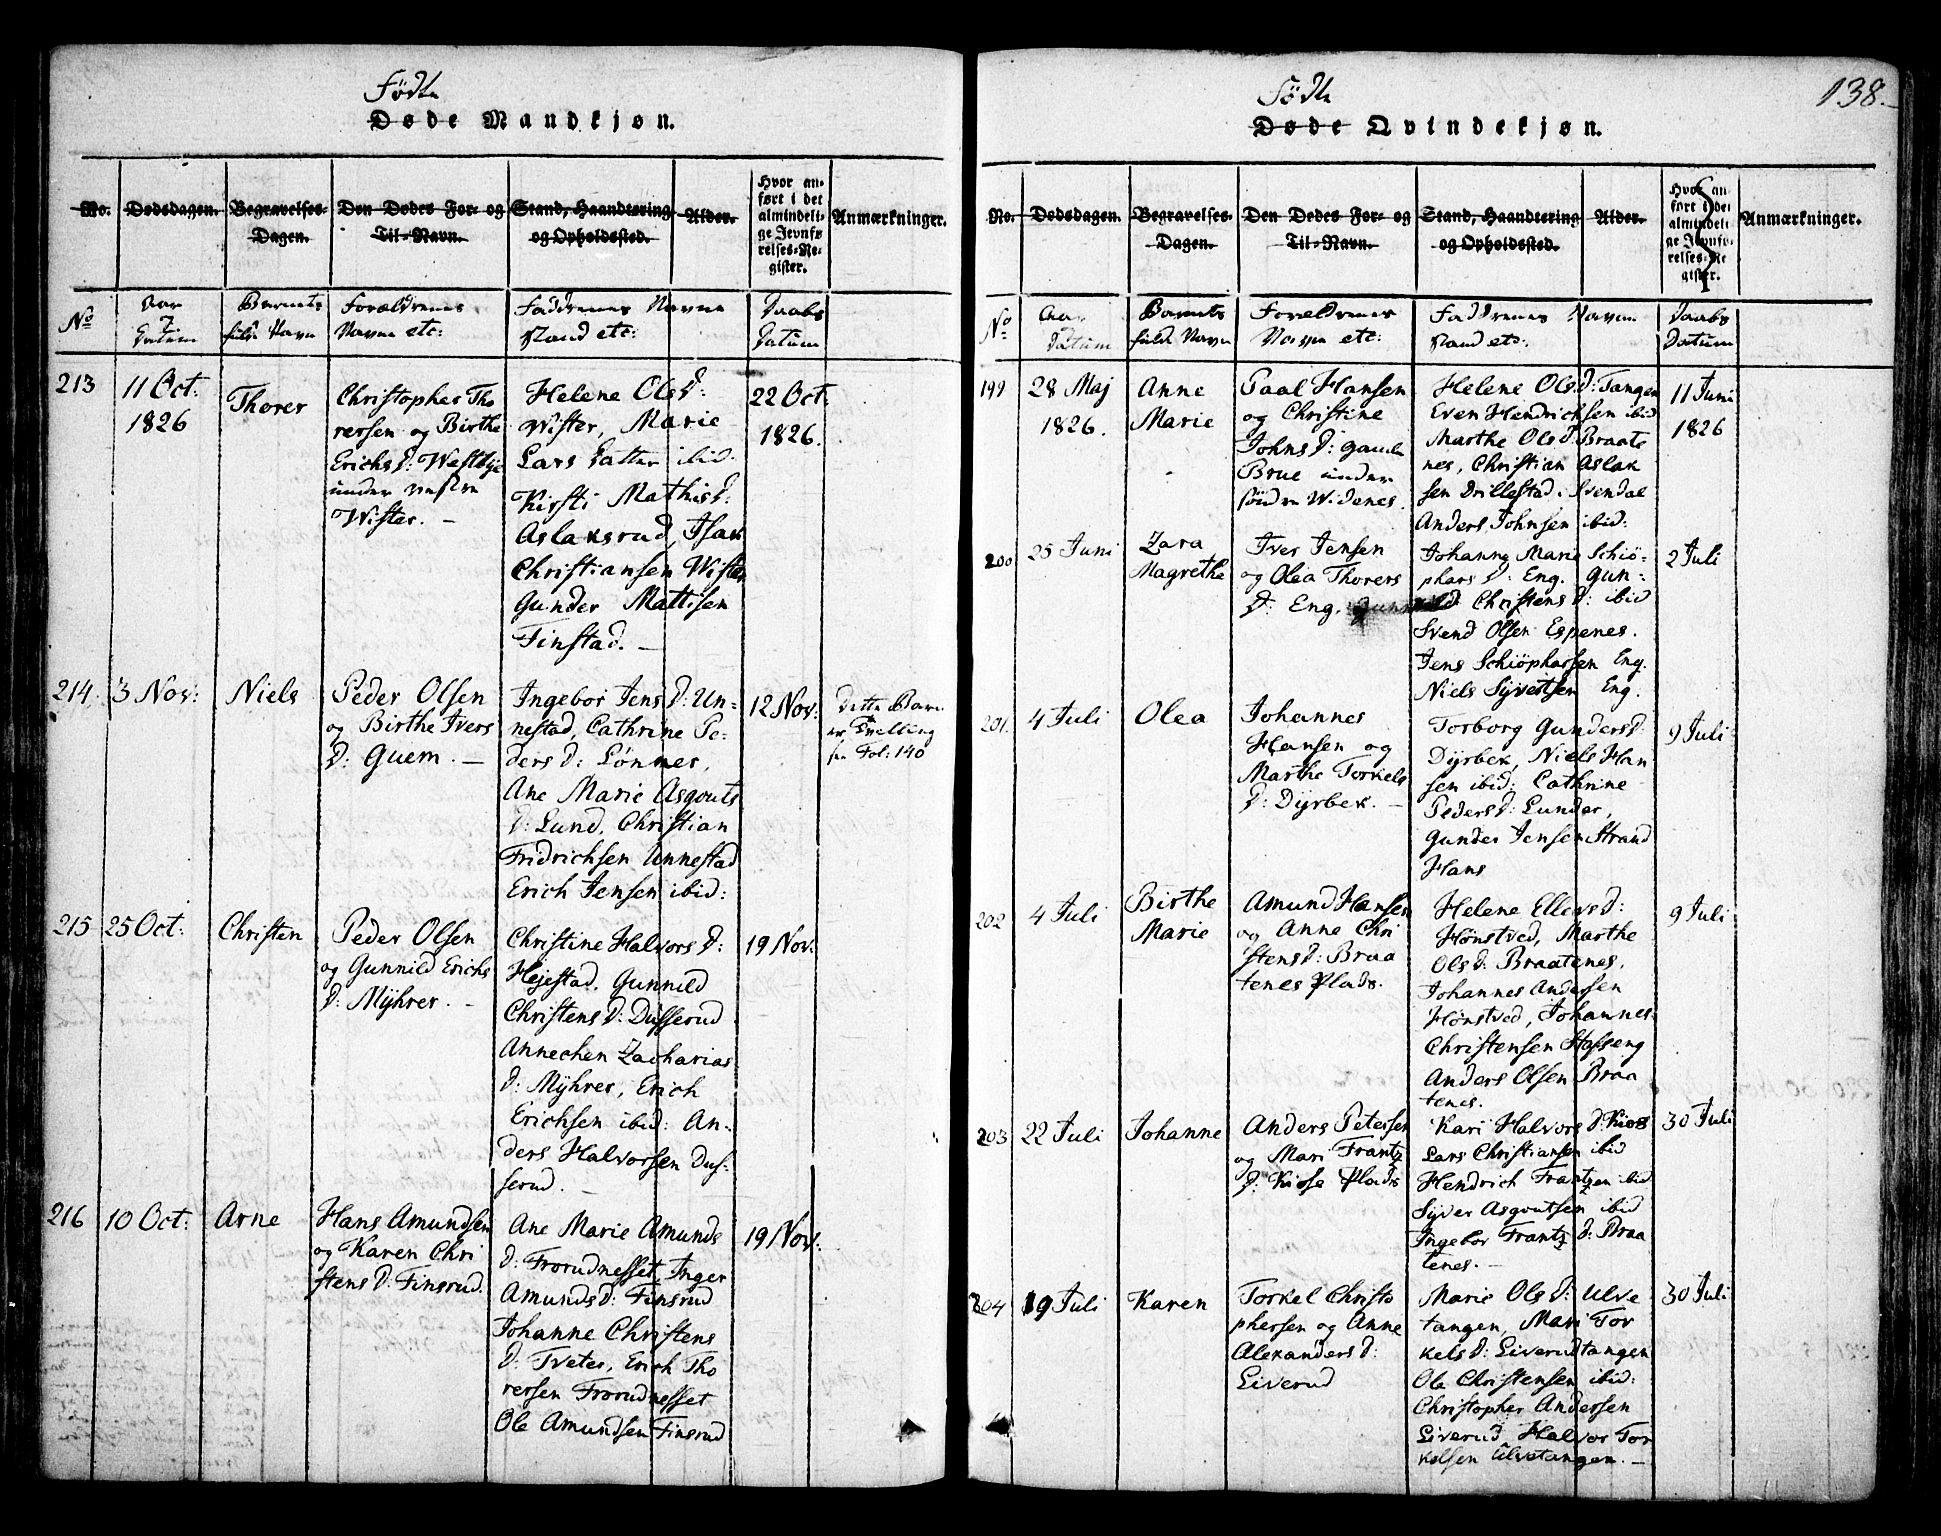 Fødte
Døde Mandkjøn.
No.
Dødsdagen.
Begravelses-
Dagen.
Den Dødes For- og
Til-Navn.
Stand, Haandtering
og Opholdssted.
Alder.
Hvor an-
ført i det
almindeli-
ge Jevnfø
relses-Re-
gister.
Anmærkninger.
No
Aar
Datum
Barnets
fulde Navn
Forældrenes
Navne etc:
Faddrenes Navne
Stand etc:
Daabs
Datum
213
11 Oct:
1826
Thorer
Christopher Tho
rersen og Birthe
Erichs D: Westbye
under
Wister. –
Helene Ols D:
Wister, Marie
Lars Datter ibid:
Kirsti Mathis D:
Aslaksrud, Isak
Christiansen Wister
Gunder Mattisen
Finstad. –
22 Oct
1826.
214
3 Nov:
Niels
Peder Olsen
og Birthe Ivers
D: Guem. –
Ingebor Jens D: Un-
nestad, Cathrine Pe-
ders D: Lønnes,
Ane Marie Asgouts
D: Lund, Christian
Fridrichsen Unnestad
Erich Jensen ibid:
12 Nov:
Dette Barn
er Tvelling
see Fol: 140
215
25 Oct:
Christen
Peder Olsen
og Gunnild Erichs
D: Mÿhrer. –
Christine Halvors D:
Hejestad, Gunnild
Christens D: Dusserud
Annechen Zacharias
D: Mÿhrer, Erich
Erichsen ibid: An-
ders Halvorsen Dus-
serud. –
19 Nov:
216
10 Oct:
Arne
Hans Amundsen
og Karen Chri
stens D: Finsrud.
Ane Marie Amunds
D: Frorudnesset, Inger
Amunds D: Finsrud
Johanne Christens
D: Tveter, Erich Tho
rersen Frorudnesset
Ole Amundsen Finsrud
19 Nov:
138.
Fødte
Døde Qvindekjøn.
No.
Dødsdagen.
Begravelses-
Dagen.
Den Dødes For- og
Til-Navn.
Stand, Haandtering
og Opholdssted.
Alder.
Hvor an-
ført i det
almindeli-
ge Jevnfø-
relses-Re
gister.
Anmærkninger.
No
Aar
Datum
Barnets
fulde Navn
Forældrenes
Navne etc:
Faddrenes Navne
Stand etc:
Daabs
Datum
199
28 Maj
1826.
Anne
Marie
Paal Hansen
og Christine
Johns D: gamle
Brue under
søndre Widenes.
Helene Ols D: Tangen
Even Hendrichsen ibid
Marthe Ols D: Braate
nes, Christian Aslak
sen Drillestad i Svendal
Anders Johnsen ibid:
11 Juni
1826
200
25 Juni
Zara
Magrethe
Iver Jensen
og Olea Thorers
D: Eng.
Johanne Marie Schiø-
phars D: Eng. Gun-:
nild Christens D: ibid
Svend Olsen Espenes.
Jens Schiøpharsen Eng.
Niels Sÿvertsen Eng.
2 Juli
201.
4 Juli
Olea
Johannes
Hansen og
Marthe Torkels
D: Dÿrbek. –
Torborg Gunders D:
Dÿrbek, Niels Han
sen ibid: Cathrine
Peders D: Lunder,
Gunder Jensen Strand
Hans
9 Juli
202
4 Juli
Birthe
Marie
Amund Hansen
og Anne Chri
stens D: Braa
tenes Plads.
Helene Ellevs D:
Hønstved, Marthe
Ols D: Braatenes,
Johannes Andersen
Hønstved, Johannes
Christensen Hofseng
Anders Olsen Braa
tenes.
9 Juli
203
22 Juli
Johanne
Anders Petersen
og Mari Frantz
D: Kiose Plads
Kari Halvors D: Kios
Lars Christiansen ibid
Hendrich Frantzen ibid
Sÿver Asgoutsen ibid
Ingebor Frantz D: Braa
tenes. –
30 Juli
204
19 Juli
Karen
Torkel Christo
phersen og Anne
Alexanders D:
Liverud
Marie Ols D: Ulve
tangen, Mari Tor
kels D: Liverudtangen
Ole Christensen ibid:
Christopher Andersen
Liverud, Halvor Tor
kelsen Ulvetangen. –
30 Juli